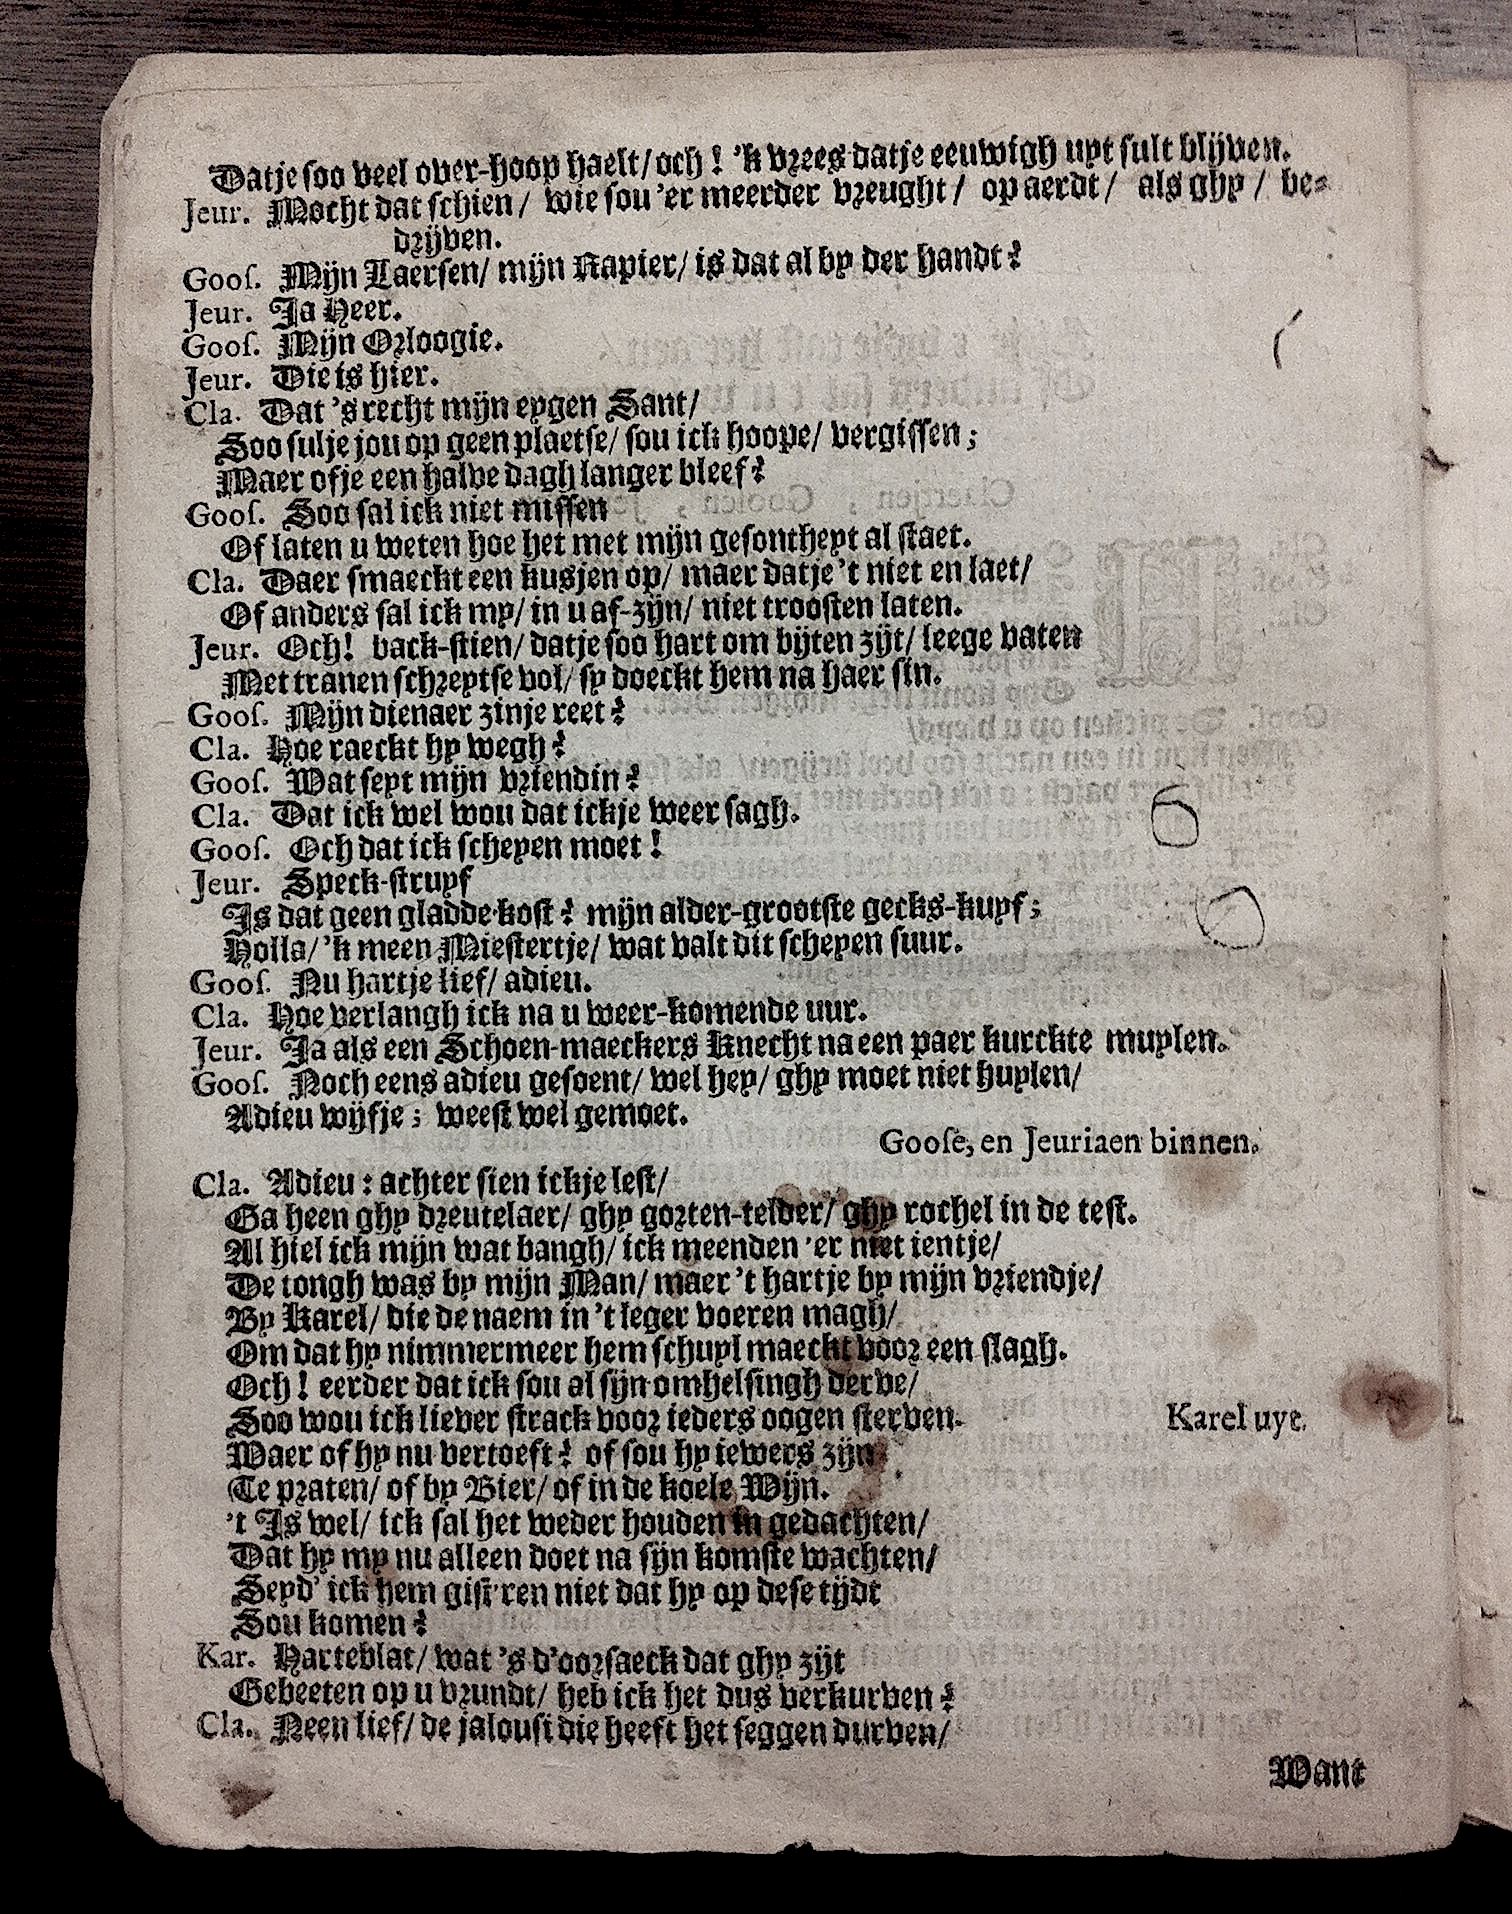 Datje soo veel over-hoop haelt/och! 'k vrees datje eeuwigh uyt sult blijven.
Jeur. Mocht dat schien/ wie sou 'er meerder vreught/ op aerdt/ als ghy/ be-
drijven.
Gooſ. Mijn Laersen/ mijn Rapier/ is dat al by der handt?
Jeur. Ja Heer.
Gooſ. Mijn Orloogie.
Jeur. Die is hier.
Cla. Dat 's recht mijn eygen Sant/
Soo sulje jou op geen plaetse/ sou ick hoope/ vergissen;
Maer ofje een halve dagh langer bleef?
Gooſ. Soo sal ick niet missen
Of laten u weten hoe het met mijn gesontheyt al staet.
Cla. Daer smaeckt een kusjen op/ maer datje 't niet en laet/
Of anders sal ick my/ in u af-zijn/ niet troosten laten.
Jeur. Och! back-stien/ datje soo hart om bijten zijt/ leege vaten
Met tranen schreytse vol/ sy doeckt hem na haer sin.
Gooſ. Mijn dienaer zinje reet?
Cla. Hoe raeckt hy wegh?
Gooſ. Wat seyt mijn vriendin?
Cla. Dat ick wel wou dat ickje weer sagh.
Gooſ. Och dat ick scheyen moet!
Jeur. Speck-struyf
Is dat geen gladde-kost? mijn alder-grootste gecks-kuyf;
Holla/ 'k meen Miestertje/ wat valt dit scheyen suur.
Gooſ. Nu hartje lief/ adieu.
Cla. Hoe verlangh ick na u weer-komende uur.
Jeur. Ja als een Schoen-maeckers Knecht na een paer kurckte muylen.
Gooſ. Noch eens adieu gesoent/ wel hey/ ghy moet niet huylen/
Adieu wijfje; weest wel gemoet.
Gooſe, en Jeuriaen binnen.
Cla. Adieu: achter sien ickje lest/
Ga heen ghy dreutelaer/ ghy gorten-telder/ ghy rochel in de test.
Al hiel ick mijn wat bangh/ ick meenden 'er niet ientje/
De tongh was by mijn Man/ maer 't hartje by mijn vriendje/
By Karel/ die de naem in 't leger voeren magh/
Om dat hy nimmermeer hem schuyl maeckt voor een slagh.
Och! eerder dat ick sou al sijn omhelsingh derve/
Soo wou ick liever strack voor ieders oogen sterven.
Karel uyt.
Waer of hy nu vertoeft? of sou hy iewers zijn
Te praten/ of by Bier/ of in de koele Wijn.
't Is wel/ ick sal het weder houden in gedachten/
Dat hy my nu alleen doet na sijn komste wachten/
Seyd' ick hem gist'ren niet dat hy op dese tijdt
Sou komen?
Kar. Harteblat/ wat 's d'oorsaeck dat ghy zijt
Gebeeten op u vrundt/ heb ick het dus verkurven?
Cla. Neen lief/ de jalousi die heeft het seggen durven/
Want